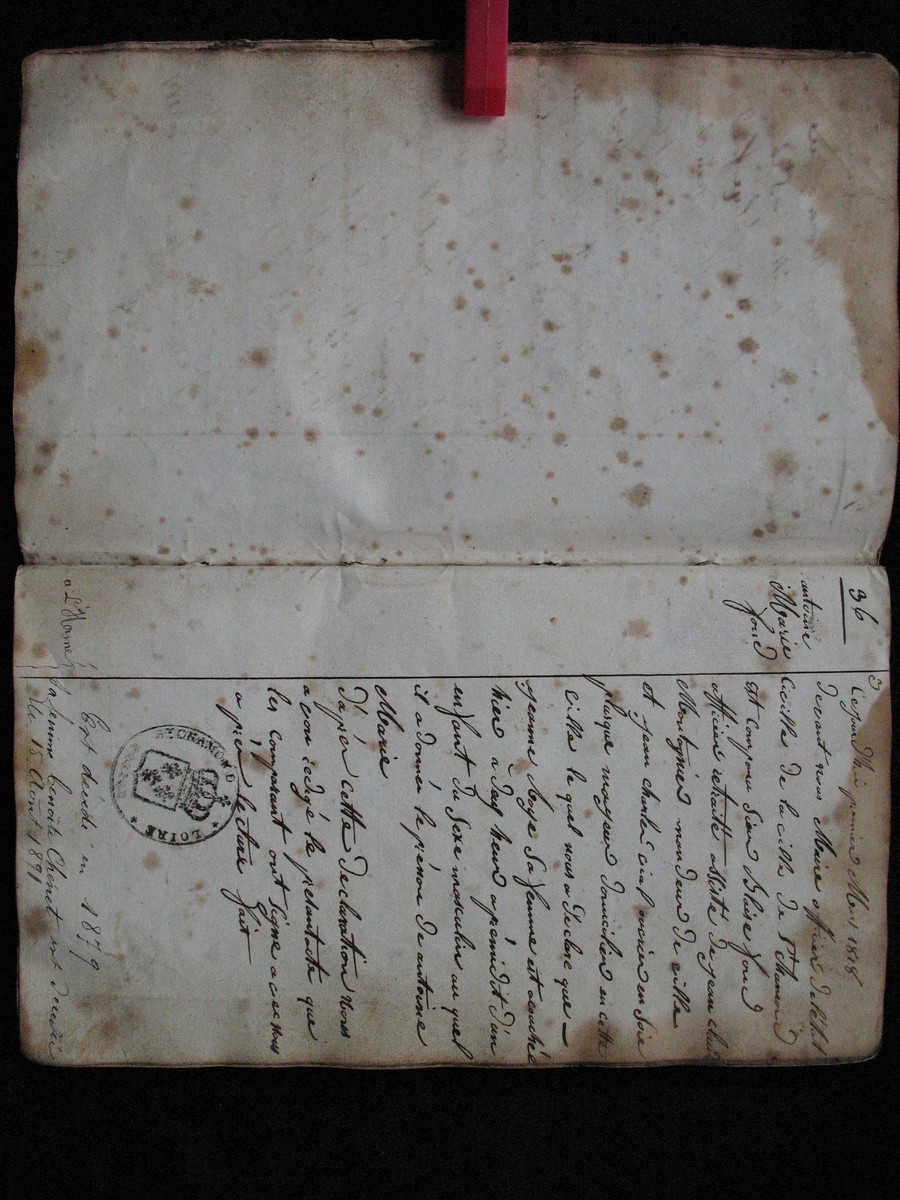 36
antoine
Marie
fond
Cejourd'hui premier Mars 1818
Devant nous Maire officier de létat
Civille de la ville de St Chamond
Est comparu Sieur Blaise fond
officier retraitté assisté de jean
Montagnier mondeur de ville
et jean charle ouvrier en Soie
plusque mageurs domicilier en cette
Ville le quel nous a Déclaré que —
jeanne Sa femme est couché
hiere à Dix heure apremidit d'un
enfant du Sexe masculin au quel
il a donner le prénon de antoine
Marie
Dapré cette Déclaration Nous
avons redigé le présentacte que
les comparant ont Signe avec nous
aprés lecture fait
ST CHAMOND
LOIRE
Est décédé en 1879
Sa femme benoîte Chénet est décédée
a L'Horme le 15 Août 1891